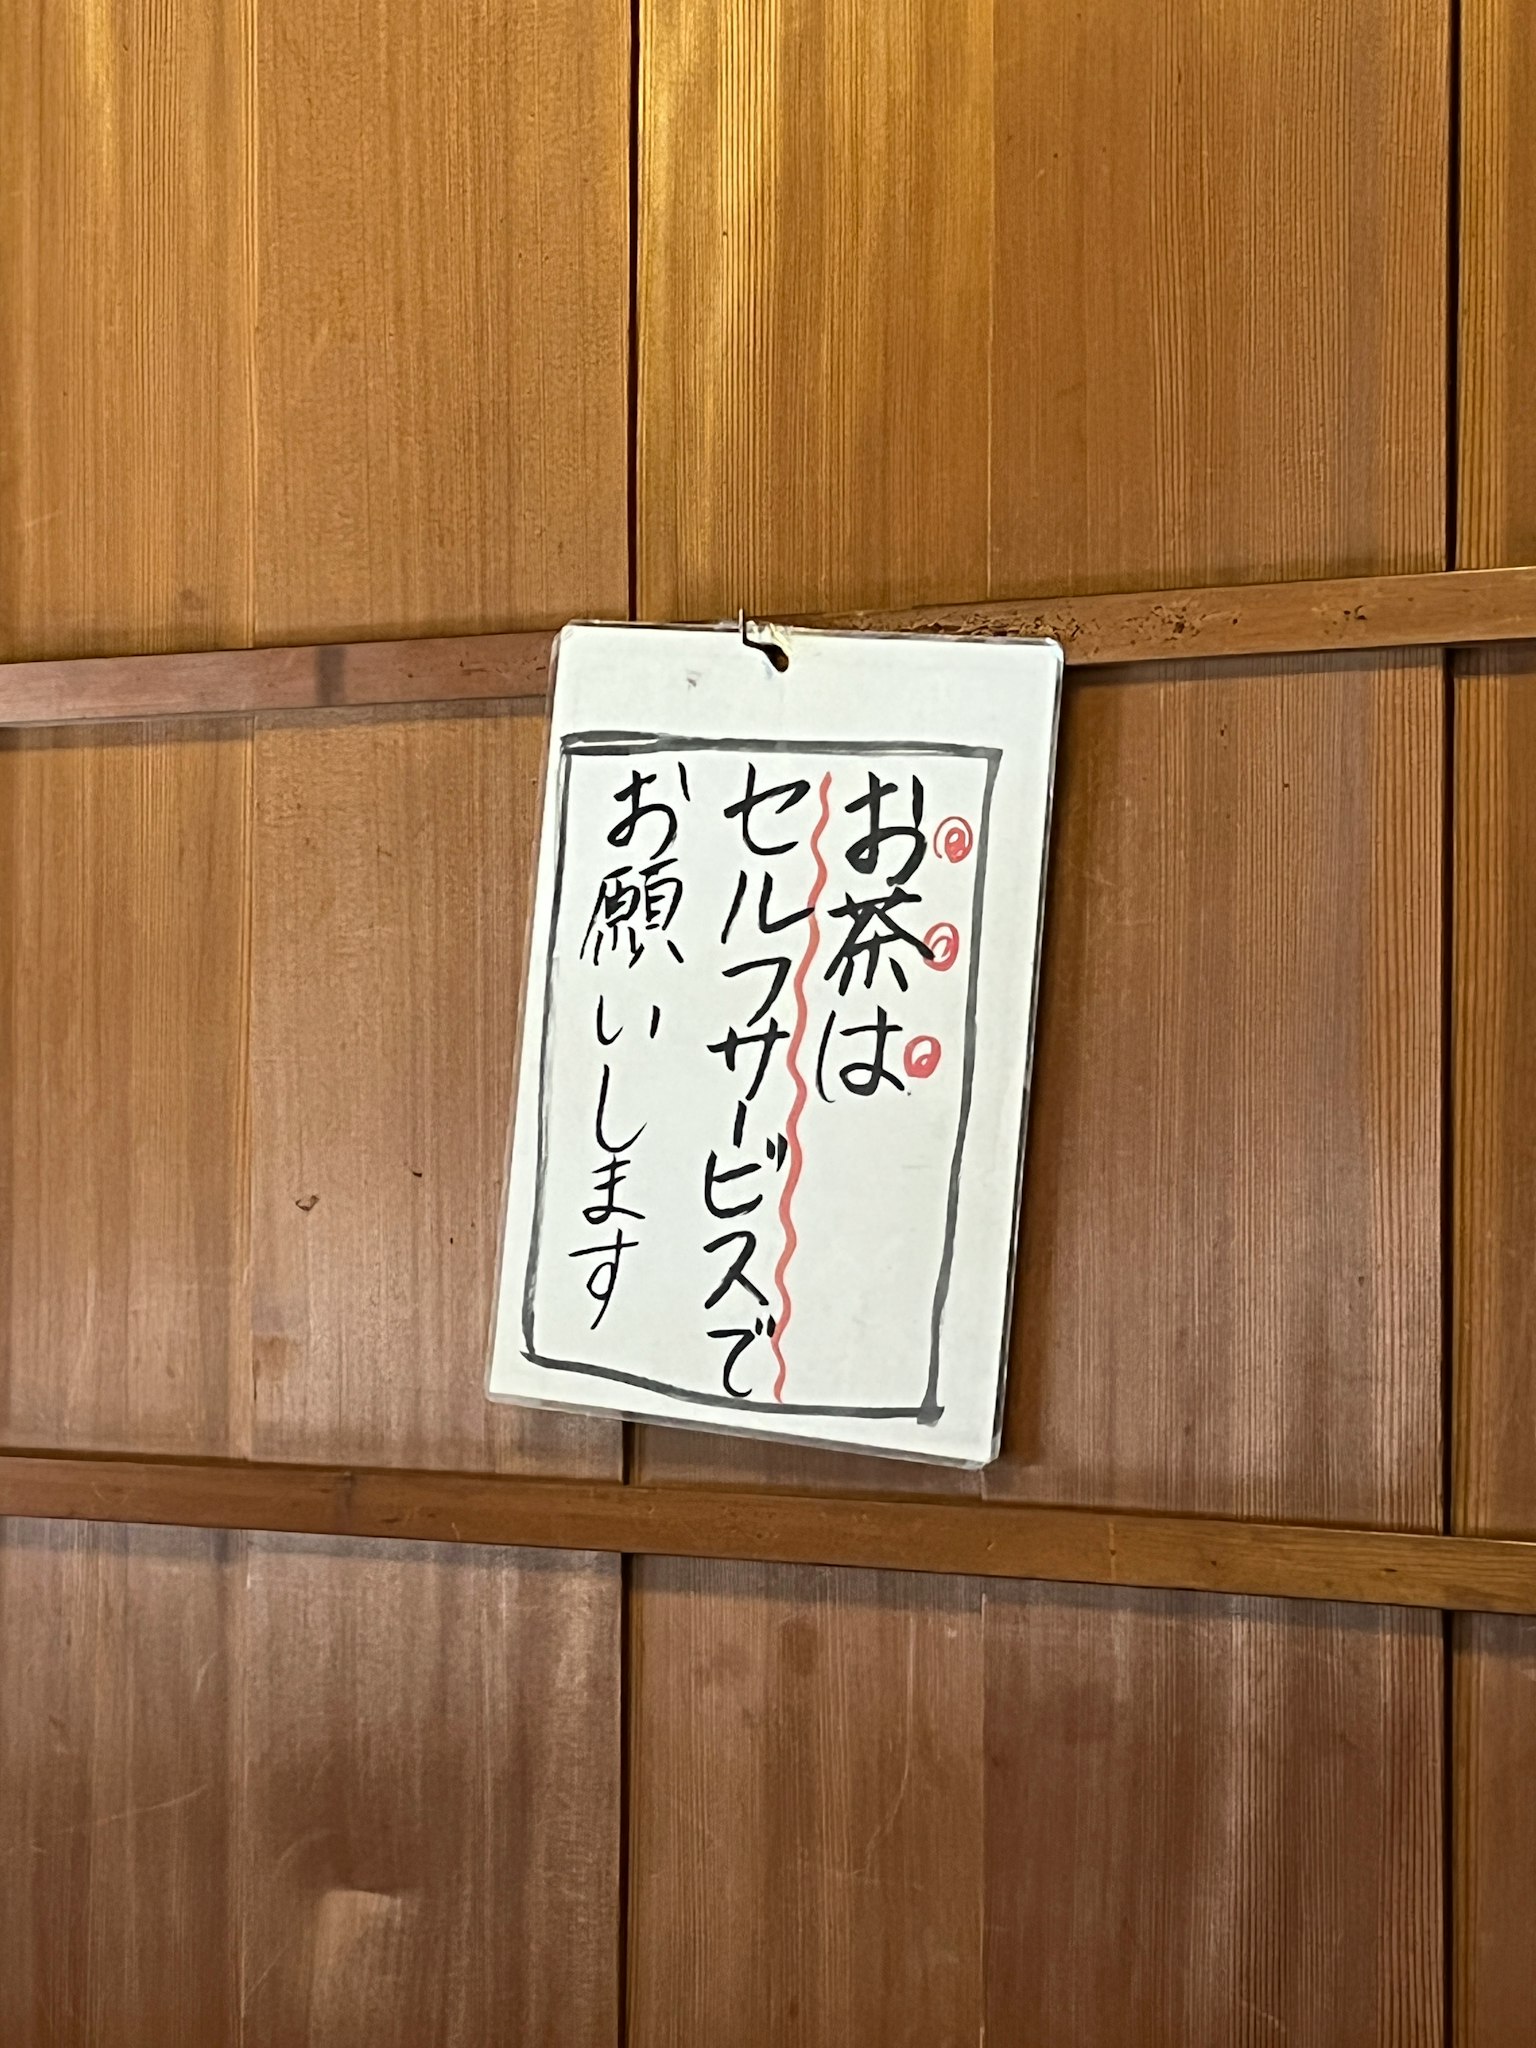 お茶は
セルフサービスで
お願いします